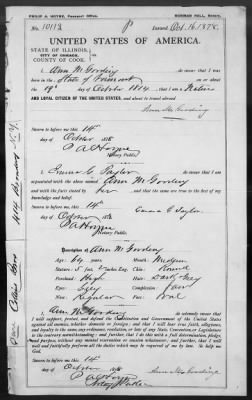 PHILIP A. HOYNE, Passport Office.
NORMAN BELL, Printer.
No. 10113
Issued Oct. 16. 1878.
UNITED STATES OF AMERICA.
STATE OF ILLINOIS,
CITY OF CHICAGO,
COUNTY OF COOK.
I, Ann M. Gooding do swear that I was
born in the State of Vermont on the
19th day of October 1814 that I am a Native
AND LOYAL CITIZEN OF THE UNITED STATES, and about to travel abroad.
Ann M. Gooding
Sworn to before me this 14th
day of October 1878
P A Hoyne
Notary Public.
I, Emma C. Taylor do swear that I am
acquainted with the above named Ann M. Gooding
and with the facts stated by her and that the same are true to the best of my
knowledge and belief.
Emma C. Taylor
Sworn to before me this 14th
day of October 1878
P A Hoyne
Notary Public.
Description of Ann M. Gooding
Age: 64 years
Mouth: Medium
Stature: 5 feet 2 inches Eng.
Chin: Round
Forehead: High
Hair: Dark Grey
Eyes: Grey
Complexion: Fair
Nose: Regular
Face: Oval
I, Ann M. Gooding do solemnly swear that I
will support, protect and defend the Constitution and Government of the United States
against all enemies, whether domestic or foreign; and that I will bear true faith, allegiance
and loyalty to the same, any ordinance, resolution or law of any State Convention or Legislature
to the contrary notwithstanding; and further, that I do this with a full determination,
pledge, and purpose, without any mental reservation or evasion whatsoever; and further, that I
will well and faithfully perform all the duties which may be required of me by law. So help me
God.
Ann M Gooding
Sworn to before me this 14th
day of October 1878
P A Hoyne
Notary Public